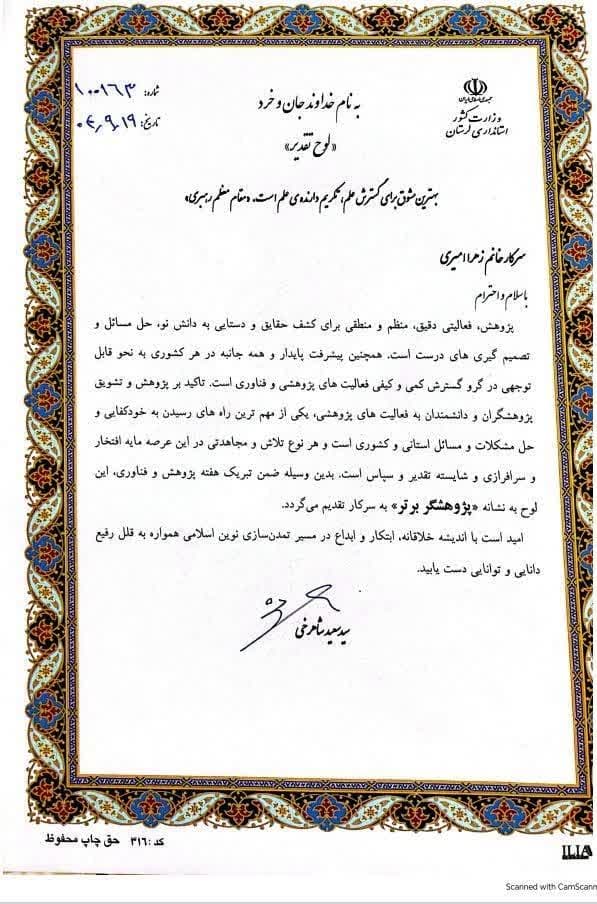 جمهوری اسلامی ایران
وزارت کشور
استانداری لرستان
به نام خداوند جان و خرد
«لوح تقدیر»
شماره: ۱۰۰۱۶۳
تاریخ: ۰۴,۹,۱۹
بهترین مشوق برای گسترش علم، تکریم دارنده‌ی علم است. «مقام معظم رهبری»
سرکار خانم زهرا امیری
باسلام و احترام
پژوهش، فعالیتی دقیق، منظم و منطقی برای کشف حقایق و دستایی به دانش نو، حل مسائل و
تصمیم گیری های درست است. همچنین پیشرفت پایدار و همه جانبه در هر کشوری به نحو قابل
توجهی در گرو گسترش کمی و کیفی فعالیت های پژوهشی و فناوری است. تاکید بر پژوهش و تشویق
پژوهشگران و دانشمندان به فعالیت های پژوهشی، یکی از مهم ترین راه های رسیدن به خودکفایی و
حل مشکلات و مسائل استانی و کشوری است و هر نوع تلاش و مجاهدتی در این عرصه مایه افتخار
و سرافرازی و شایسته تقدیر و سپاس است. بدین وسیله ضمن تبریک هفته پژوهش و فناوری، این
لوح به نشانه «پژوهشگر برتر» به سرکار تقدیم می‌گردد.
امید است با اندیشه خلاقانه، ابتکار و ابداع در مسیر تمدن‌سازی نوین اسلامی همواره به قلل رفیع
دانایی و توانایی دست یابید.
سید سعید شاهرخی
کد: ۳۱۶ حق چاپ محفوظ
ILIA
Scanned with CamScann